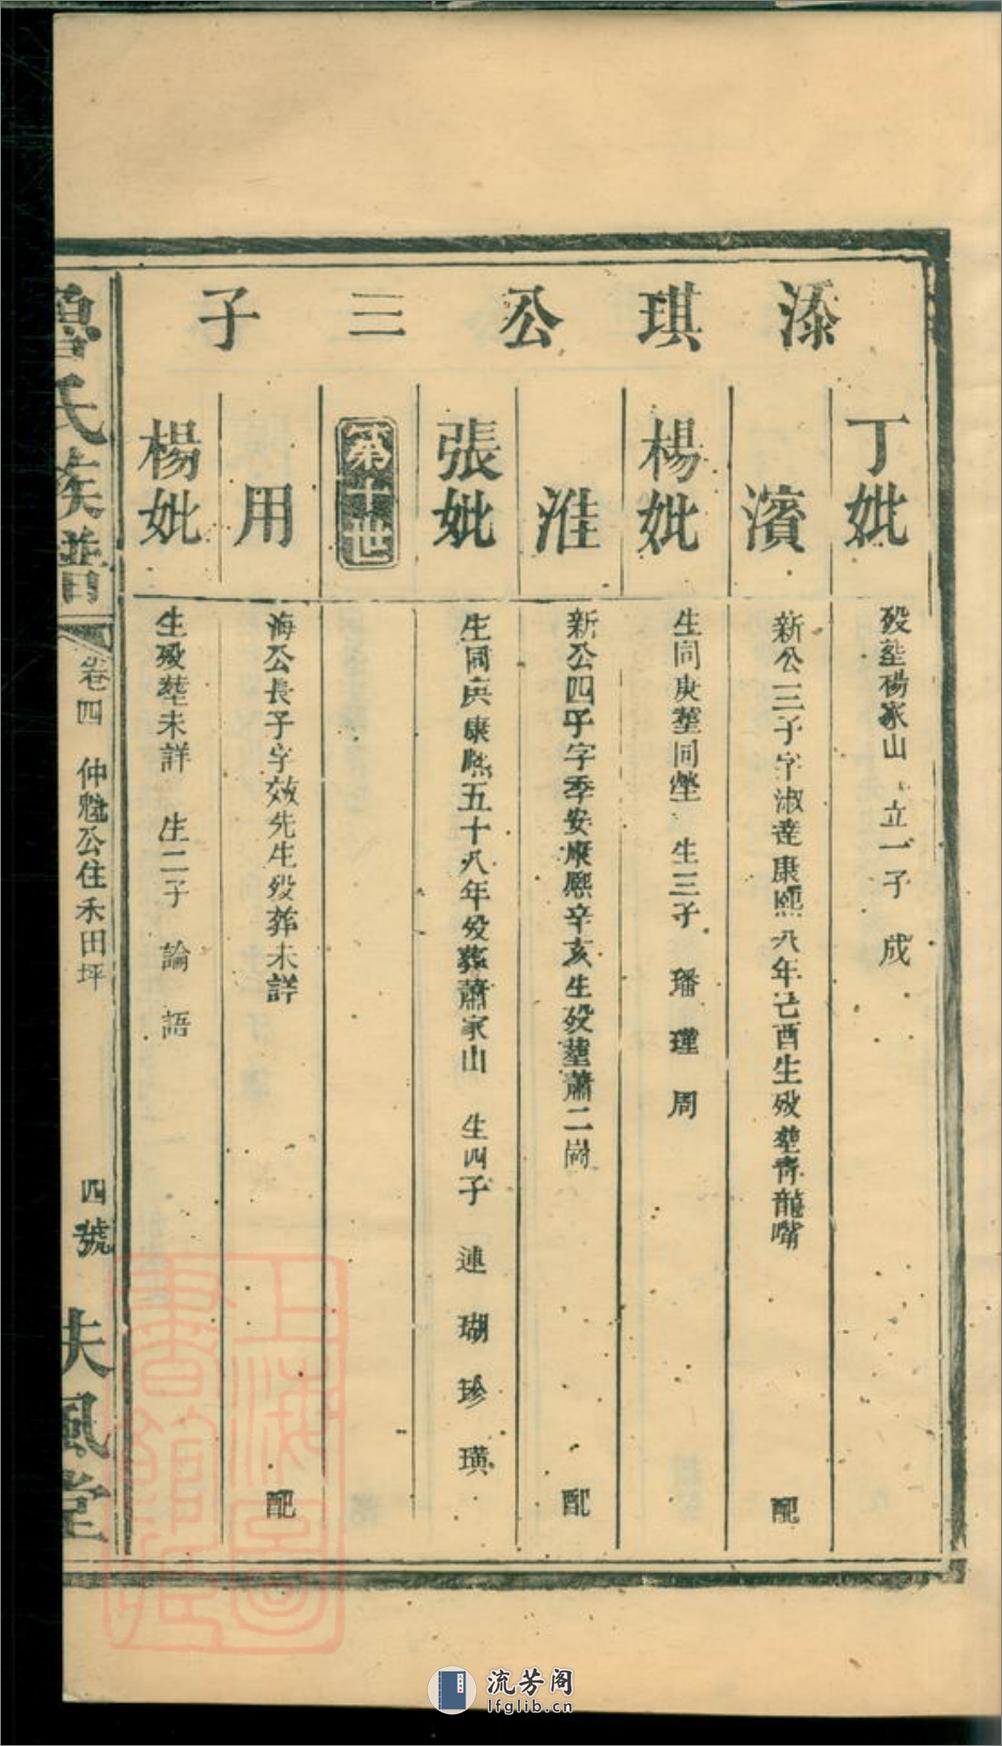 添琪公三子
丁妣
歿塟楊家山　立一子　成
濱
新公三子字淑達康熙八年己酉生歿塟青龍嘴　配
楊妣
生同庚塟同塋　生三子　璠　瑾　周
淮
新公四子字季安康熙辛亥生歿塟蕭二崗　配
張妣
生同庚康熙五十八年歿葬蕭家山　生四子　連　瑚　珍　璜
第十世
用
海公長子字效先生歿葬未詳　配
楊妣
生歿塟未詳　生二子　論　語
魯氏族譜　卷四　仲魁公住禾田坪　四號　扶風堂
上海圖書館藏
流芳阁
lfglib.cn